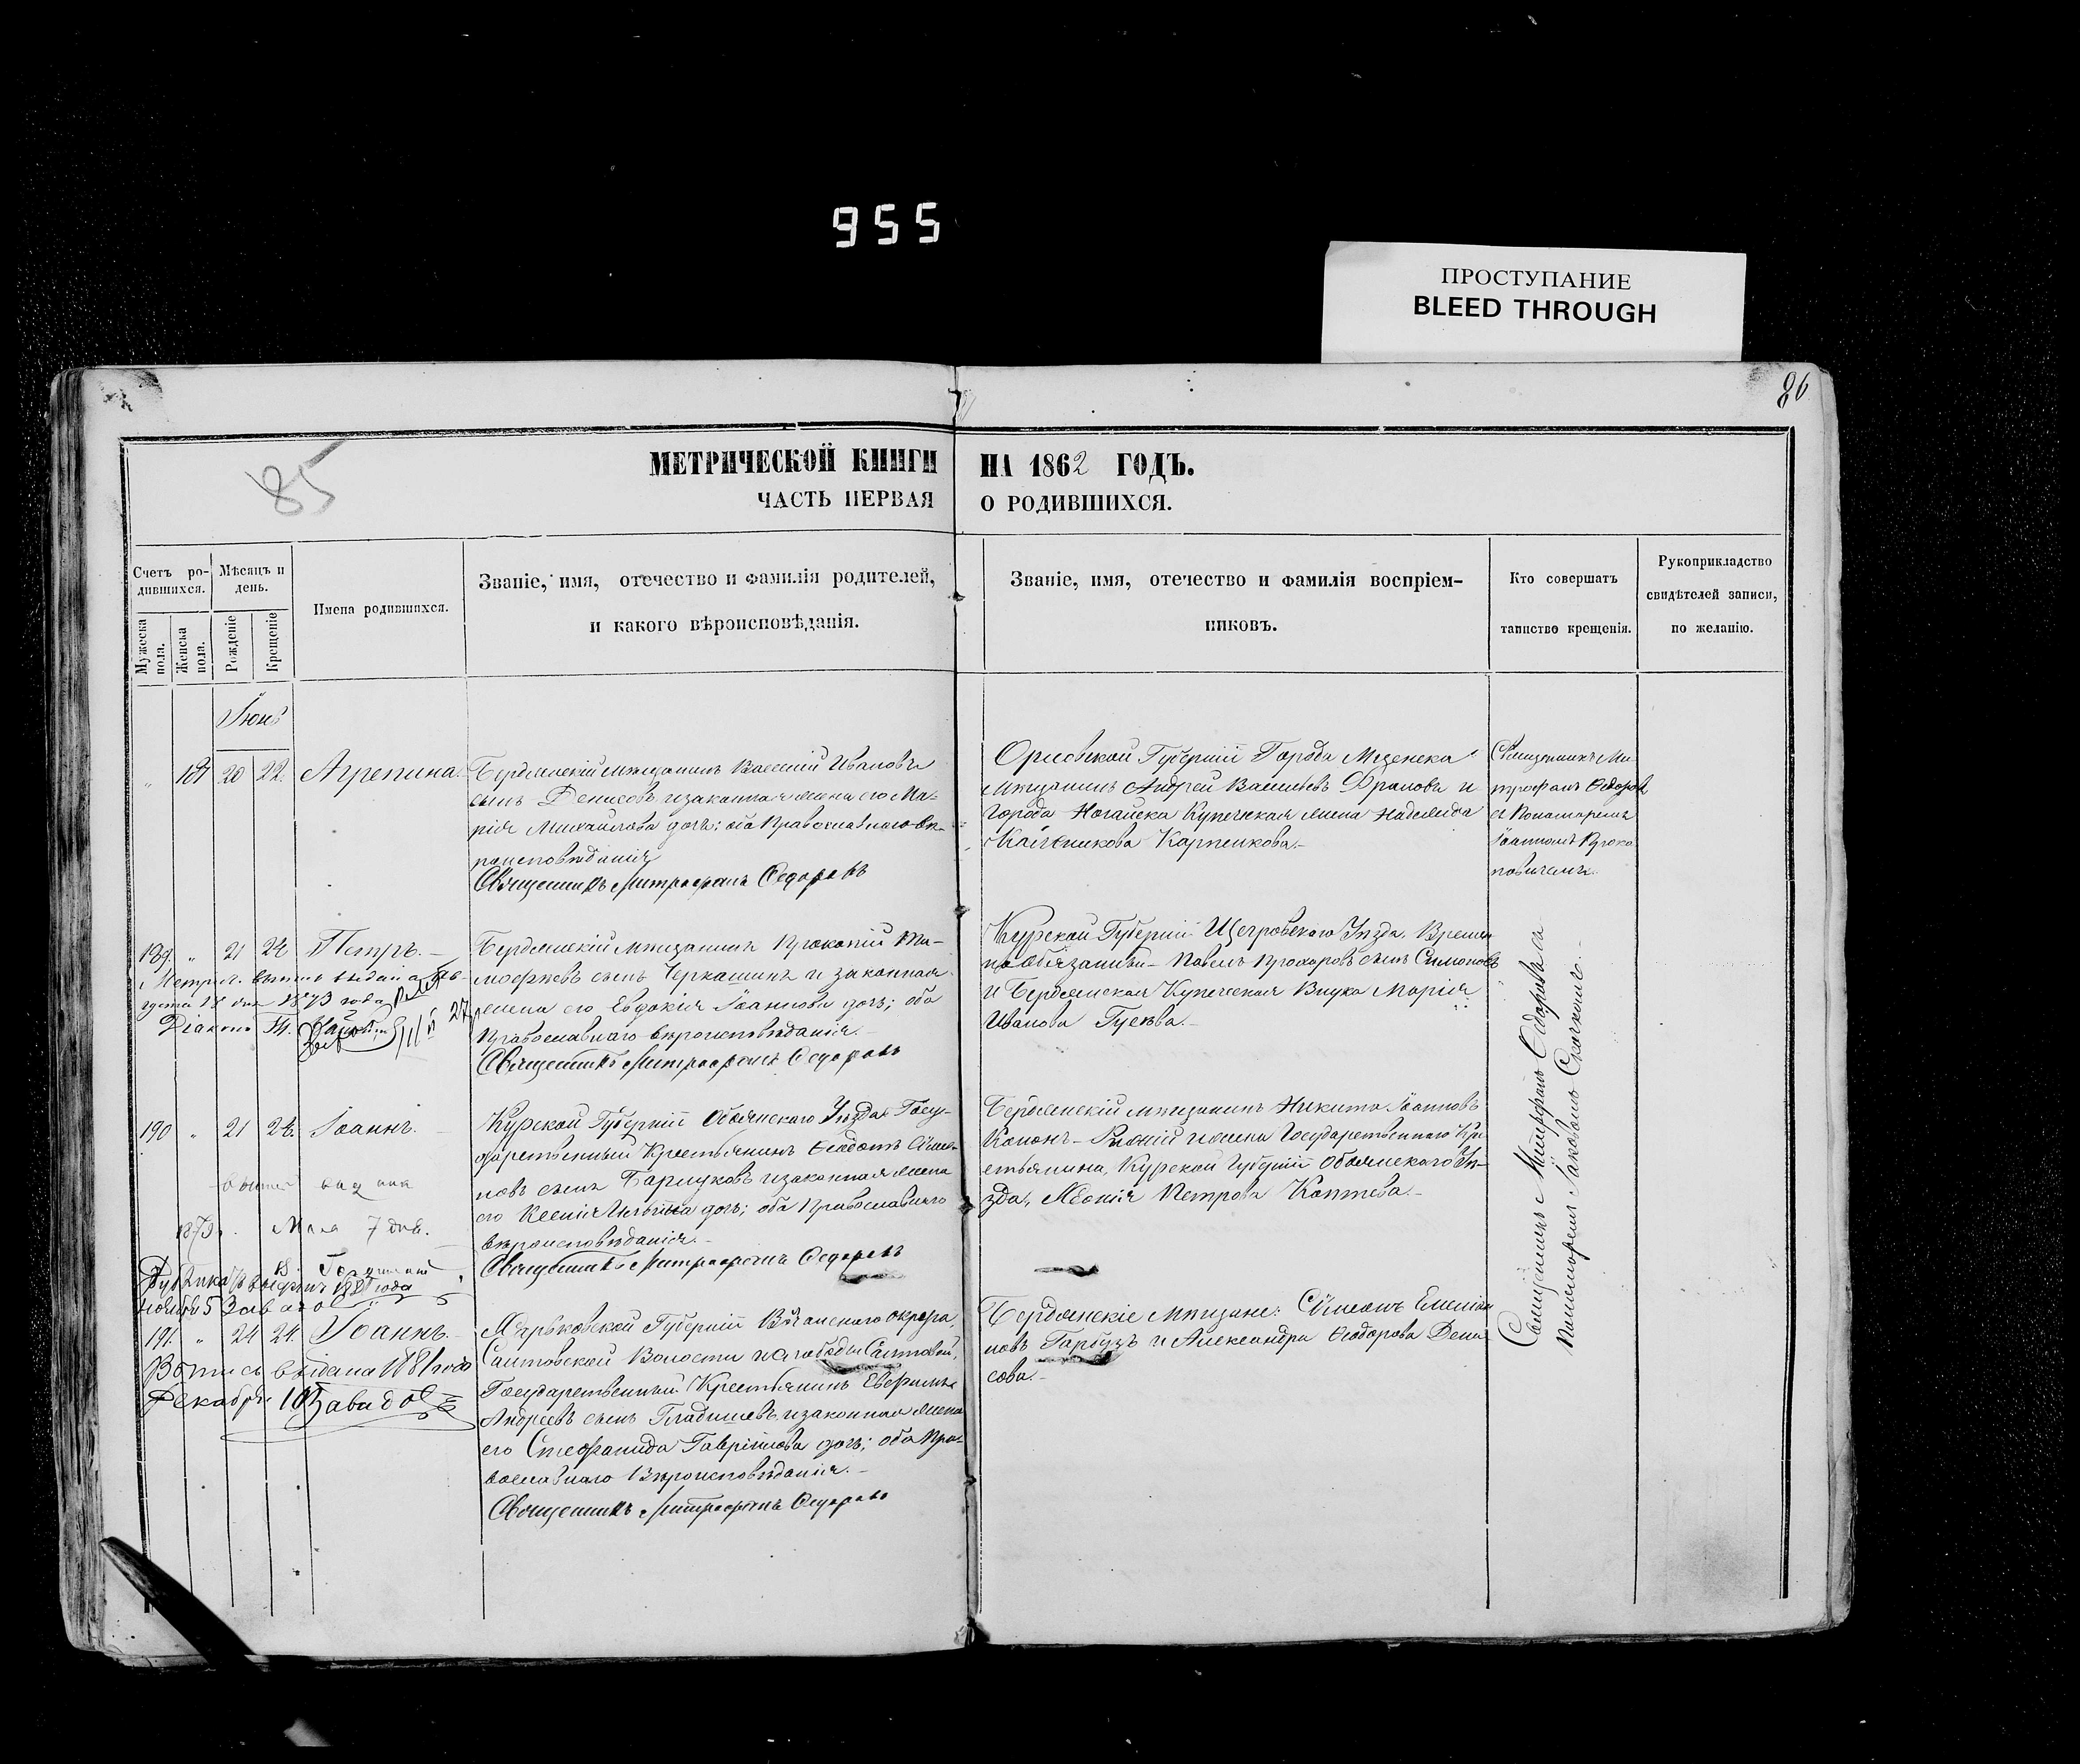 955
ПРОСТУПАНИЕ
BLEED THROUGH
86
85
МЕТРИЧЕСКОЙ КНИГИ НА 1862 ГОДЪ.
ЧАСТЬ ПЕРВАЯ О РОДИВШИХСЯ.
Счетъ ро-
дившихся.
Мужеска пола.
Женска пола.
Мѣсяцъ и
день.
Рожденіе
Крещеніе
Имена родившихся.
Званіе, имя, отечество и фамилія родителей,
и какого вѣроисповѣданія.
Званіе, имя, отечество и фамилія воспріем-
никовъ.
Кто совершатъ
таинство крещенія.
Рукоприкладство
свидѣтелей записи,
по желанію.
Іюнь
" 187 20 22. Агрепина.
Бердянскій мѣщанинъ Василій Ивановъ
сынъ Денисовъ и законная жена его Ма-
рія Михайлова дочь; оба Православнаго вѣ-
роисповѣданія
Священникъ Митрофанъ Ѳедоровъ
Орловской Губерніи Города Мценска
мѣщанинъ Андрей Васильевъ и
города Ногайска Купеческая жена Надежда
Карпенкова.-
Священникъ Ми-
трофанъ Ѳедоровъ
съ Пономаремъ
Іоанномъ Проко
повичемъ.
189. " 21 24 Петръ.-
Метрич. выпись выдана Ав-
густа 18 дня 1873 года
Діаконъ
27
Бердянскій мѣщанинъ Прокопій Ти-
моѳеевъ сынъ Черкашинъ и законная
жена его Евдокія Іоаннова дочь; оба
Православнаго вѣроисповѣданія.-
Священникъ Митрофанъ Ѳедоровъ
Курской Губерніи Щегровскаго Уѣзда. Времен
но Обязанный- Павелъ Прохоровъ сынъ Симоновъ
и Бердянская Купеческая Внука Марія
Иванова Гусева.-
190 " 21 24. Іоаннъ.-
выдана
1879. Мая 7 дня.
ноября 5 Завадов
Курской Губерніи Обоянскаго Уѣзда Госу-
дарственный Крестьянинъ Ѳеодотъ
новъ сынъ и законная жена
его Ксенія дочь; оба Православнаго
вѣроисповѣданія.-
Священникъ Митрофанъ Ѳедоровъ
Бердянскій мѣщанинъ Никита Іоанновъ
и жена Государственнаго Кре
стьянина, Курской Губерніи Обоянскаго Уѣ-
зда, Петрова Коптева.-
191. " 24 24. Іоаннъ.-
Выпись выдана 1881 года
Декабря 10 Завадов
Харьковской Губерніи Волчанскаго округа,
Салтовской Волости и слободы Салтовой,
Государственный Крестьянинъ Евфимъ
Андреевъ сынъ Гладишевъ и законная жена
его Стефанида Гавріилова дочь; оба Пра-
вославнаго Вѣроисповѣданія.-
Священникъ Митрофанъ Ѳедоровъ
Бердянскіе мѣщане: Сѵмеонъ Емеліан
новъ Гарбузъ и Александра Ѳеодорова Дени
сова.-
Священникъ Митрофанъ Ѳедоровъ съ
Пономаремъ Іаковомъ